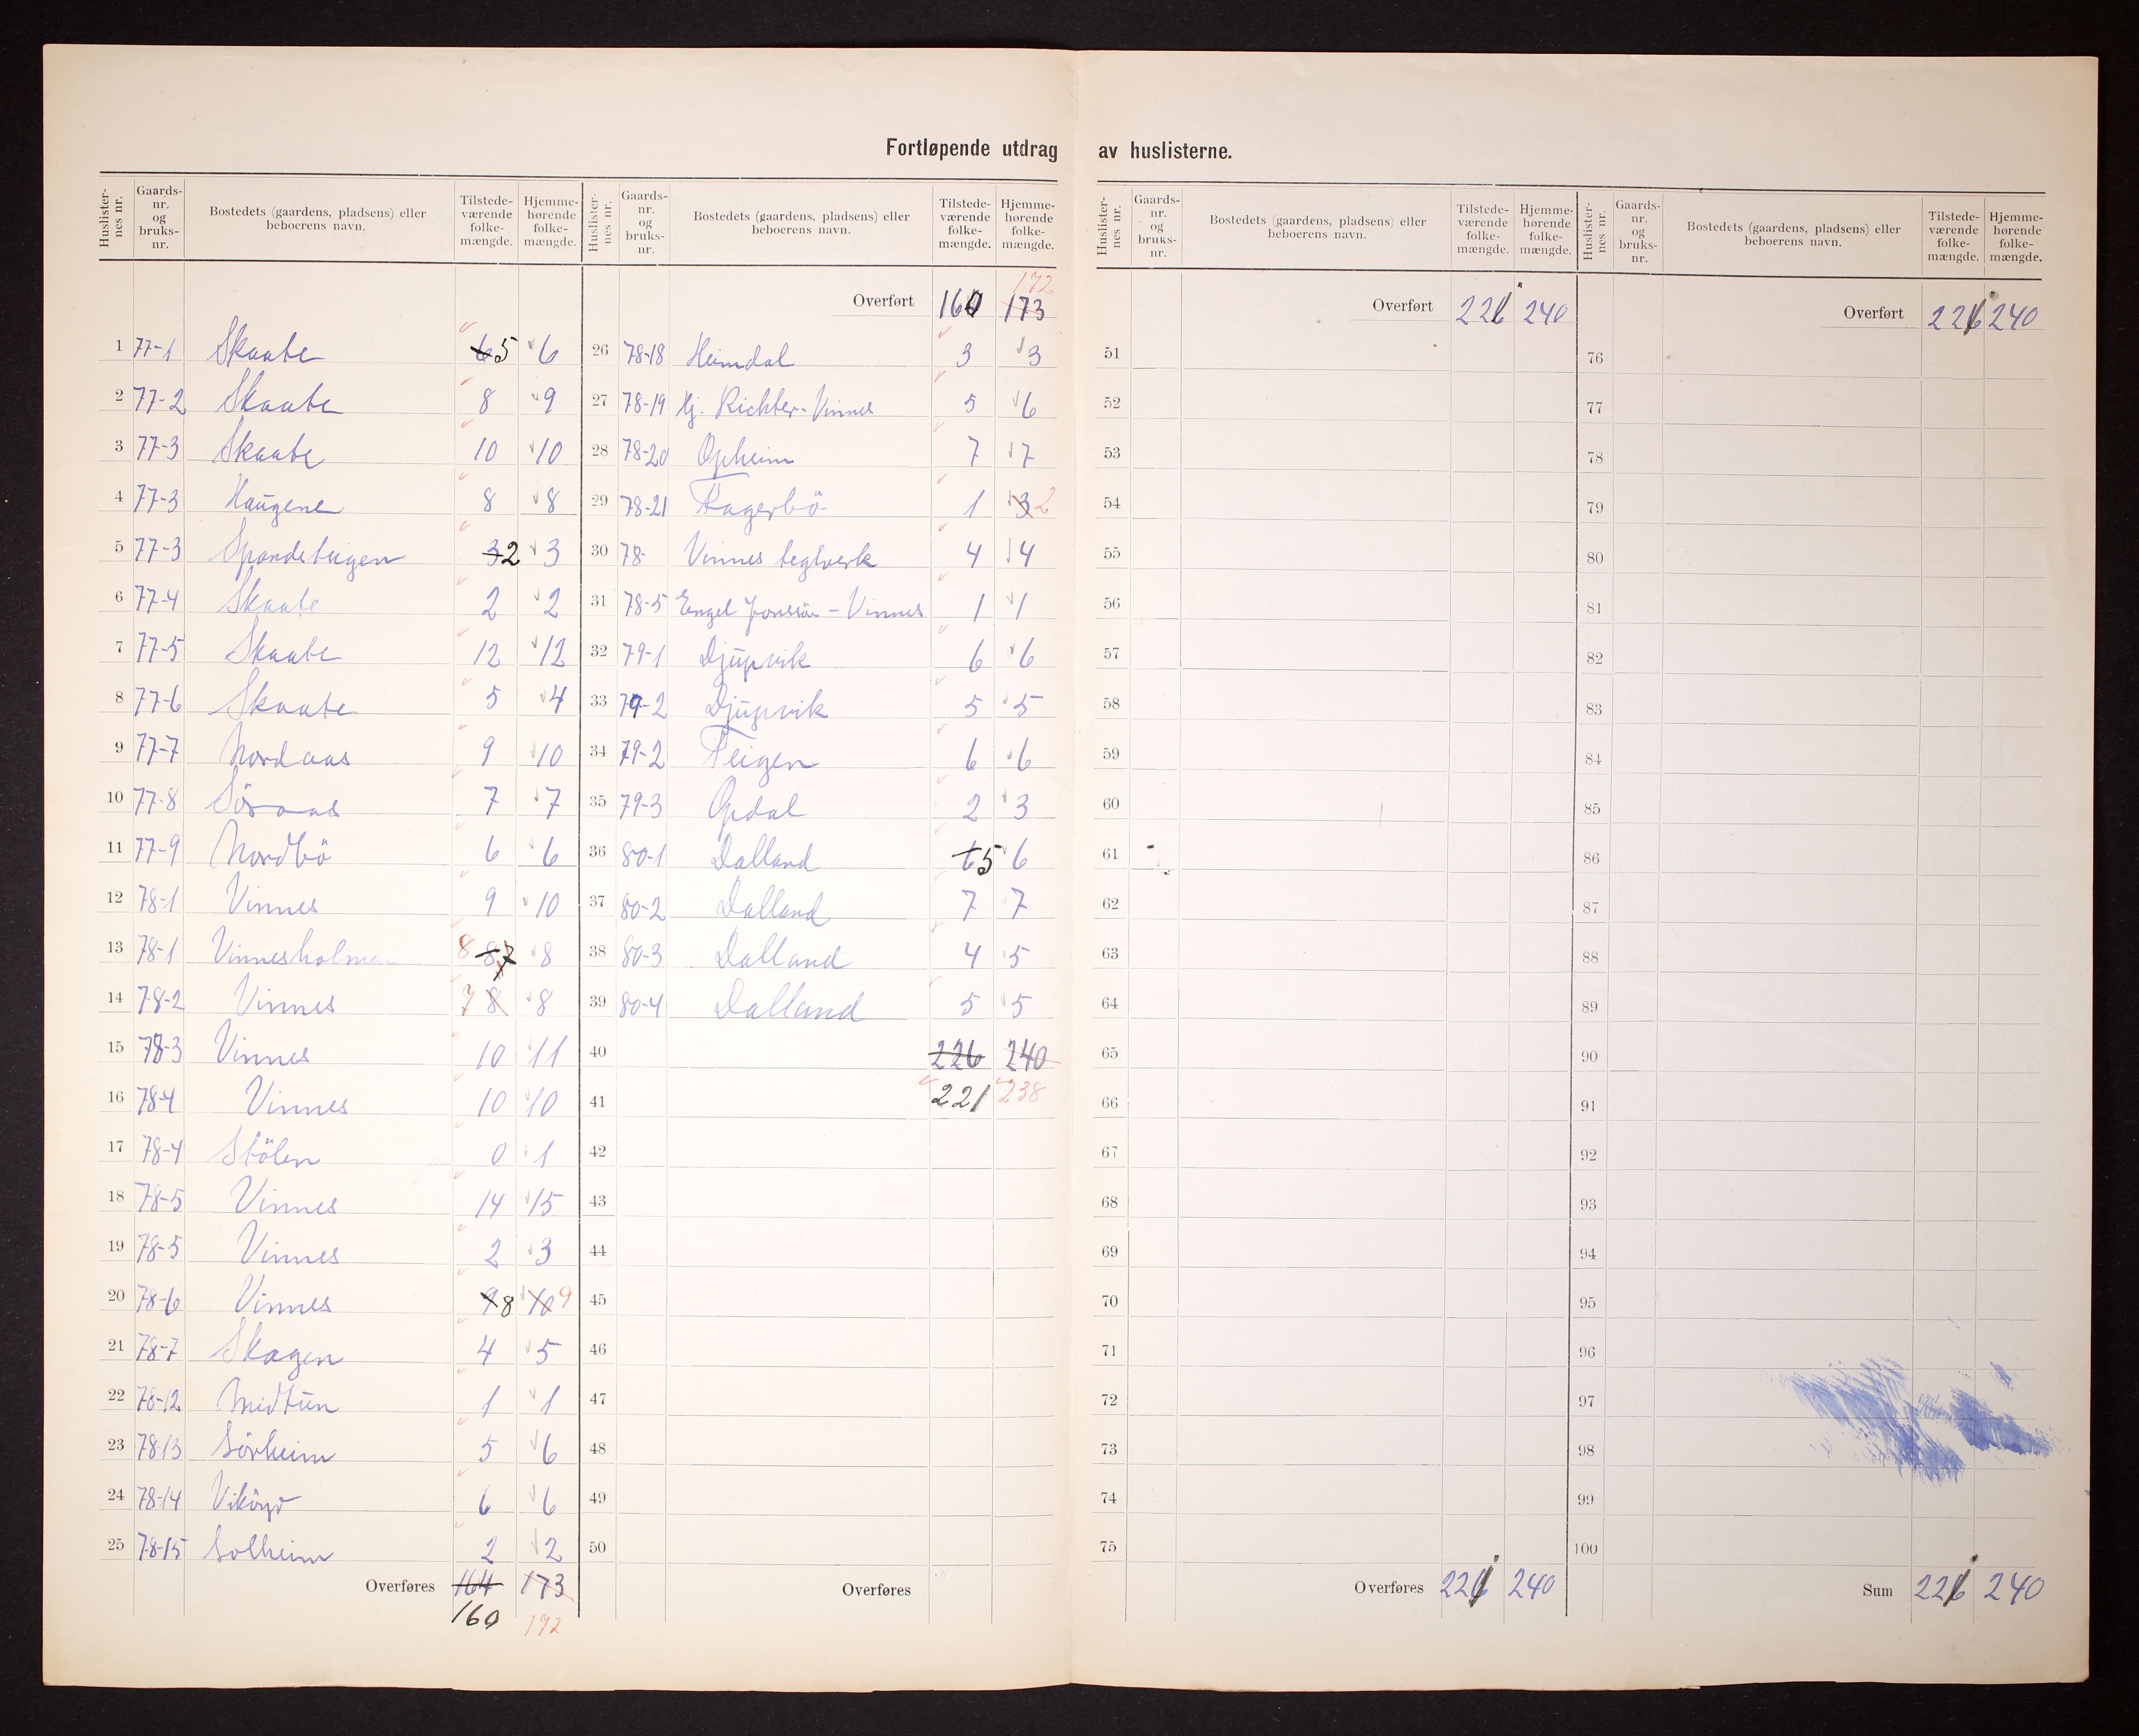 Fortløpende utdrag av huslisterne.
Huslister-nes nr. Gaards-nr. og bruks-nr. Bostedets (gaardens, pladsens) eller beboerens navn. Tilstede-værende folke-mængde. Hjemme-hørende folke-mængde.
1 77-1 Skaate 6 5 6
2 77-2 Skaate 8 9
3 77-3 Skaate 10 10
4 77-3 Haugene 8 8
5 77-3 3 2 3
6 77-4 Skaate 2 2
7 77-5 Skaate 12 12
8 77-6 Skaate 5 4
9 77-7 Nordaas 9 10
10 77-8 Söraas 7 7
11 77-9 Nordbö 6 6
12 78-1 Vinnes 9 10
13 78-1 Vinnesholmen 8 8 7 8
14 78-2 Vinnes 7 8 8
15 78-3 Vinnes 10 11
16 78-4 Vinnes 10 10
17 78-4 Stölen 0 1
18 78-5 Vinnes 14 15
19 78-5 Vinnes 2 3
20 78-6 Vinnes 9 8 10 9
21 78-7 Skagen 4 5
22 78-12 Midtun 1 1
23 78-13 Sörheim 5 6
24 78-14 Viköyr 6 6
25 78-15 Solheim 2 2
Overføres 164 173
160 172
Huslister-nes nr. Gaards-nr. og bruks-nr. Bostedets (gaardens, pladsens) eller beboerens navn. Tilstede-værende folke-mængde. Hjemme-hørende folke-mængde.
172
Overført 160 173
26 78-18 Heimdal 3 3
27 78-19 Hj. Richter-Vinnes 5 6
28 78-20 Opheim 7 7
29 78-21 Fagerbö 1 3 2
30 78- Vinnes teglverk 4 4
31 78-5 Engel Jonssön - Vinnes 1 1
32 79-1 Djupvik 6 6
33 79-2 Djupvik 5 5
34 79-2 Teigen 6 6
35 79-3 Opdal 2 3
36 80-1 Dalland 6 5 6
37 80-2 Dalland 7 7
38 80-3 Dalland 4 5
39 80-4 Dalland 5 5
40 226 240
41 221 238
42
43
44
45
46
47
48
49
50
Overføres
Huslister-nes nr. Gaards-nr. og bruks-nr. Bostedets (gaardens, pladsens) eller beboerens navn. Tilstede-værende folke-mængde. Hjemme-hørende folke-mængde.
Overført 221 240
51
52
53
54
55
56
57
58
59
60
61
62
63
64
65
66
67
68
69
70
71
72
73
74
75
Overføres 221 240
Huslister-nes nr. Gaards-nr. og bruks-nr. Bostedets (gaardens, pladsens) eller beboerens navn. Tilstede-værende folke-mængde. Hjemme-hørende folke-mængde.
Overført 221 240
76
77
78
79
80
81
82
83
84
85
86
87
88
89
90
91
92
93
94
95
96
97
98
99
100
Sum 221 240